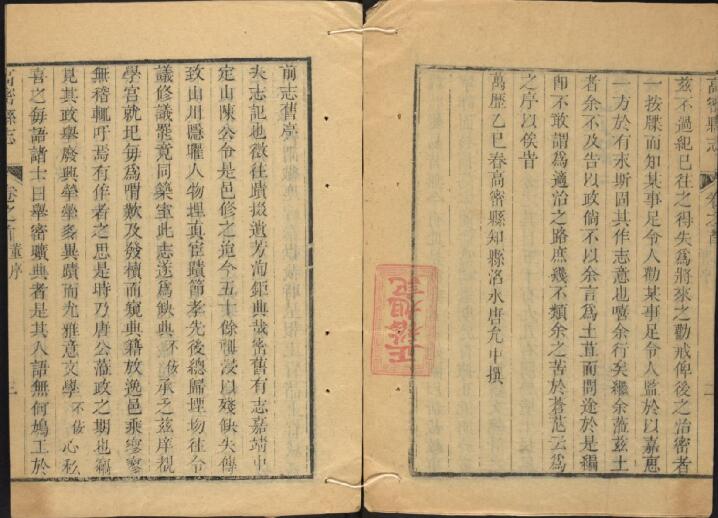 高密縣志
卷之首
二
茲不過紀已往之得失為將來之勸戒俾後之治密者
一按牒而知某事足令人勸某事足令人監於以嘉惠
一方於有永斯固其作志意也嘻余行矣繼余蒞茲土
者余不及告以政倘不以余言為土苴而問途於是編
卽不敢謂為適治之路庶幾不類余之苦於蒼茫云為
之序以俟昔
萬歷乙巳春高密縣知縣洛水唐允中撰
前志舊序
夫志記也徵往蹟掇遺芳洵鉅典哉密舊有志嘉靖中
定山陳公令是邑修之迨今五十餘禩浸以殘缺失傳
致山川隱曜人物埋真宦蹟節孝先後總歸堙圽往令
議修議罷竟同築室此志遂為缺典不佞承乏茲庠覩
學宮就圮每為喟歎及發櫝而窺典籍放逸邑乘寥寥
無稽輒吁焉有作者之思是時乃唐公蒞政之期也竊
見其政舉廢興犖犖多異蹟而尤雅意文學不佞心私
喜之每語諸士曰舉密曠典者是其人語無何鳩工於
高密縣志
卷之首
董序
三